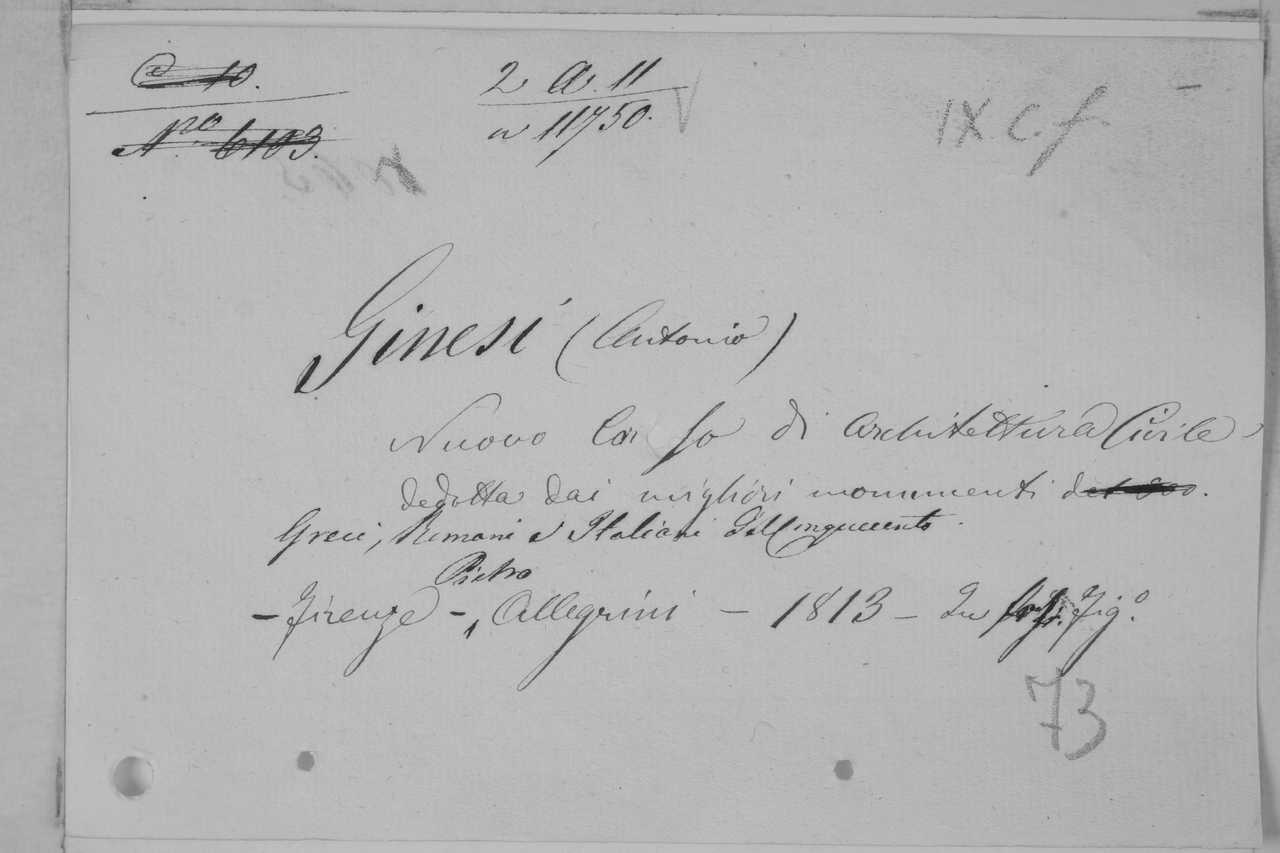 C 10.
2 A. 11
IX C. f.
N.ro 6103.
n 11750.
Ginesi (Antonio)
Nuovo Corso di Architettura Civile
dedotta dai migliori monumenti
Greci, Romani e Italiani del Cinquecento.
Pietro
– Firenze – Allegrini – 1813 – In fol. Fig.o
73